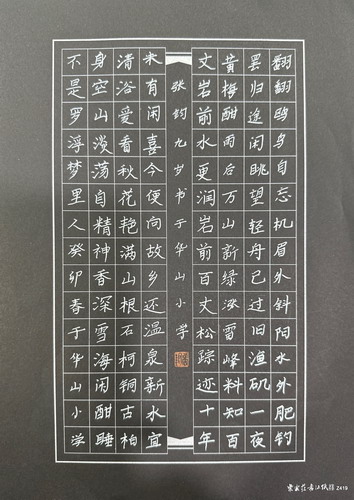 翻翻鸥鸟自忘机眉外斜阳水外肥钓
罢归途闲眺望轻舟已过旧渔矶一夜
黄梅酣雨后万山新绿涨雷峰料知百
丈岩前水更润岩前百丈松踪迹十年
张钧九岁书于华山小学
来有闲喜今便向故乡还温泉新水宜
清浴爱看秋花艳满山根石柯铜古柏
身空山淡荡自精神香深雪海闲酣睡
不是罗浮梦里人癸卯春于华山小学
2419